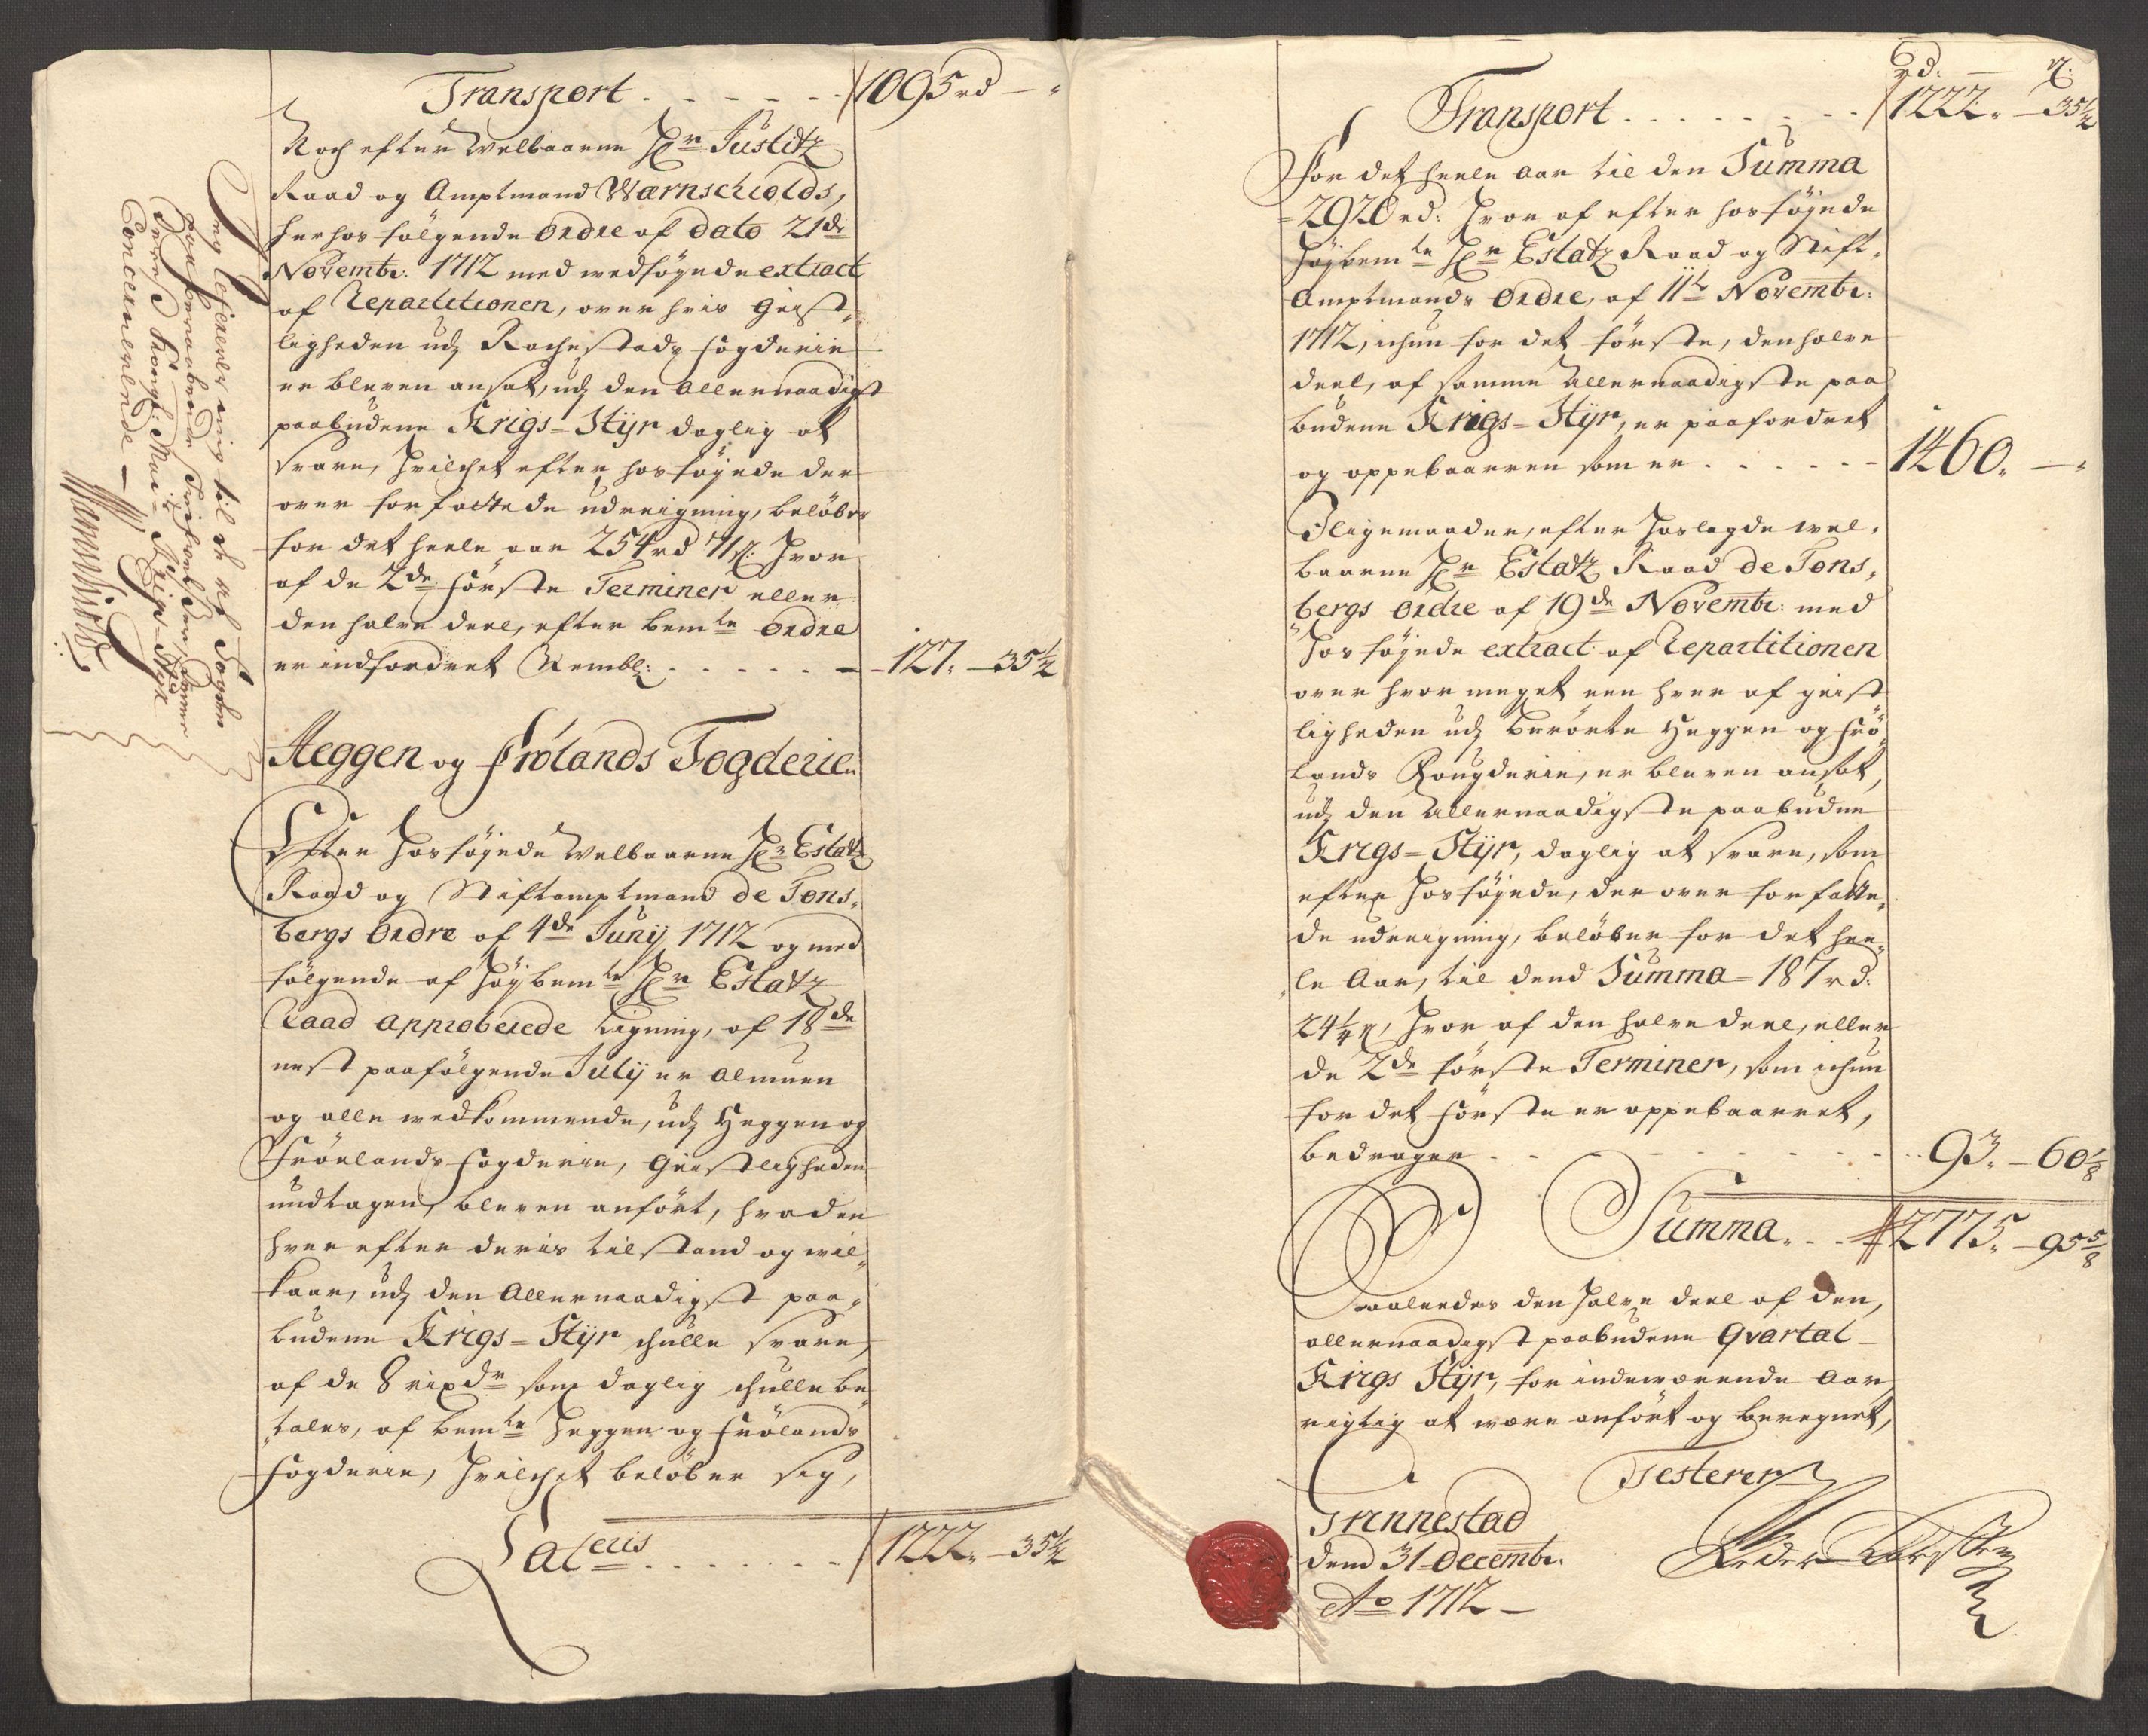 Transport . . . . . . 1095 rd — "
Noch efter Welbaarne Hr Justitz
Raad og Amptmand Wærnschiolds,
herhos følgende Ordre af dato 21de
Novembr: 1712 med wedføgede extract
af Repartitionen, over hvis Geist-
ligheden udj Rachestads fogderie
er bleven ansat, udj den Allernaadigst
paabudene Krigs-Styr daglig at
svare, hvilchet efter hosføyede der
over forfattede udreigning, beløber
for det heele aar 254 rd 71 s: hvor
af de 2de første Terminer eller
den halve deel, efter bemte Ordre
er indfordret . . . . . . 127. — 35 1/2
Heggen og Frølands Fogderie.
Efter hosføyede Welbaarne Hr Estatz
Raad og Stiftamptmand de Tons-
bergs Ordre af 4de Junij 1712 og med
følgende af høybemte Hr Estatz
Raad approberede Ligning, af 18de
nest paafølgende Julij er Almuen
og alle wedkommende, udj Heggen og
Frølands fogderie, Geistligheden
undtagen, bleven anført, hvad en
hver efter deris tilstand og wil-
kaar, udj den Allernaadigst paa-
budene Krigs-Styr schulle svare,
af de 8 rixdr som daglig schulle be-
tales, af bemte Heggen og Frølands
fogderie, hvilchet beløber sig,
Lateris . . . . . . . 1222. — 35 1/2
Jeg refererer mig til de ved Fogden
Concernerende —
rd: — s:
Transport . . . . . . . 1222. — 35 1/2
for det heele Aar til den Summa
- 2920 rd: hvor af efter hosføyede
høybemte Hr Estatz Raad og Stift-
Amptmands Ordre, af 11te Novembr:
1712, ichun for det første, den halve
deel, af samme Allernaadigste paa
budene Krigs-Styr, er paafordret
og oppebaarren som er . . . . . . 1460. — "
Iligemaader, efter hoslagde wel-
baarne Hr Estatz Raad de Tons-
bergs Ordre af 19de Novembr: med
hosføyede extract af Repartitionen
over hvor meget een hver af geist
ligheden udj berørte Heggen og Frø-
lands Fougderie, er bleven ansat,
udj den Allernaadigste paabudne
Krigs-Styr, daglig at svare, som
efter hosføyede, der over forfatte-
de udreigning, beløber for det hee-
le Aar, til dend Summa - 187 rd:
24 1/4 s, hvor af den halve deel, eller
de 2de første Terminer, som ichun
for det første er oppebaarret,
bedrager . . . . . . . . 93. — 60 1/8
Summa. . . 2775. — 95 5/8
Saaledes den halve deel af den,
allernaadigst paabudene Qvartal
Krigs Styr, for indeværende Aar
rigtig at være anført og beregnet,
Testerer
Trinnestad
dend 31 Decembr.
Ao 1712 —